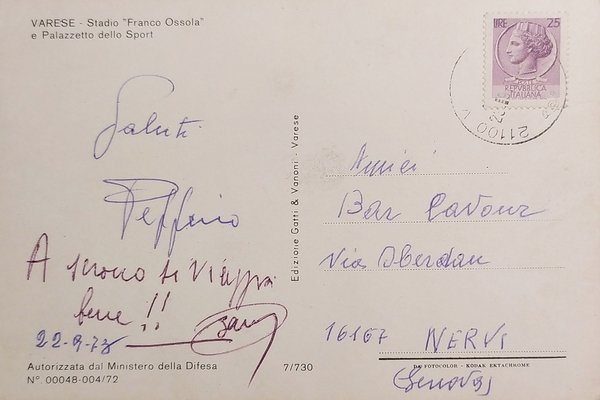 VARESE - Stadio "Franco Ossola"
e Palazzetto dello Sport
LIRE 25
REPVBBLICA
ITALIANA
21100 V
Saluti
Peppino
A scrocco si viaggia
bene !!
22-9-73
Autorizzata dal Ministero della Difesa
N° 00048-004/72
7/730
Edizione Gatti & Vanoni - Varese
Amici
Bar Cavour
Via Oberdan
16167 NERVI
(Genova)
DA FOTOCOLOR - KODAK EKTACHROME